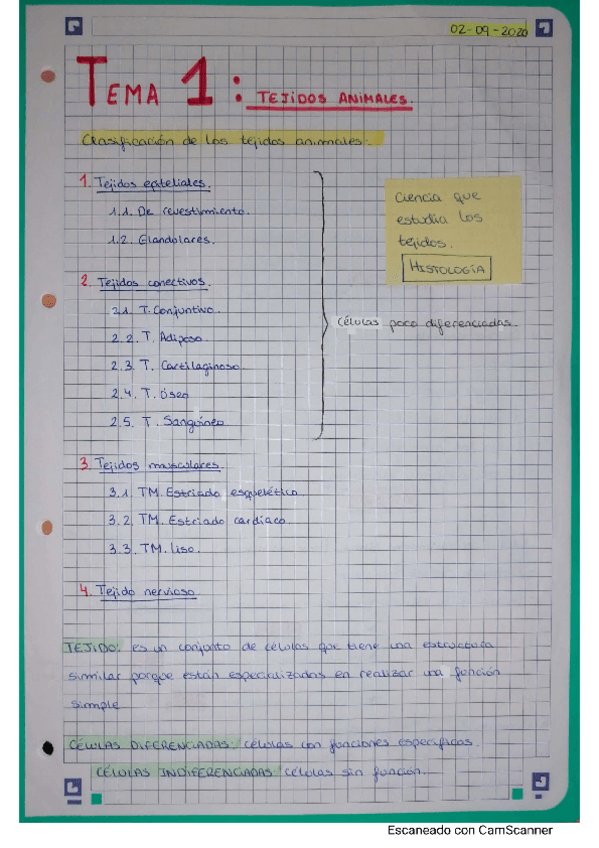 02-09-2020
TEMA 1: TEJIDOS ANIMALES.
Clasificación de los tejidos animales.
1. Tejidos epiteliales.
1.1. De revestimiento.
1.2. Glandolares.
Ciencia que
estudia los
tejidos.
HISTOLOGÍA
2. Tejidos conectivos.
2.1. T. Conjuntivo.
2.2. T. Adiposo.
2.3. T. Cartilaginoso
2.4. T. óseo
2.5. T. Sanguíneo
Células poco diferenciadas.
3. Tejidos musculares.
3.1. TM. Estriado esquelético
3.2. TM. Estriado cardíaco.
3.3. TM. liso.
4. Tejido nervioso.
TEJIDO: es un conjunto de células que tiene una estructura
similar porque están especializadas en realizar una función
simple
CÉLULAS DIFERENCIADAS: células con funciones específicas.
CÉLULAS INDIFERENCIADAS: células sin función.
Escaneado con CamScanner